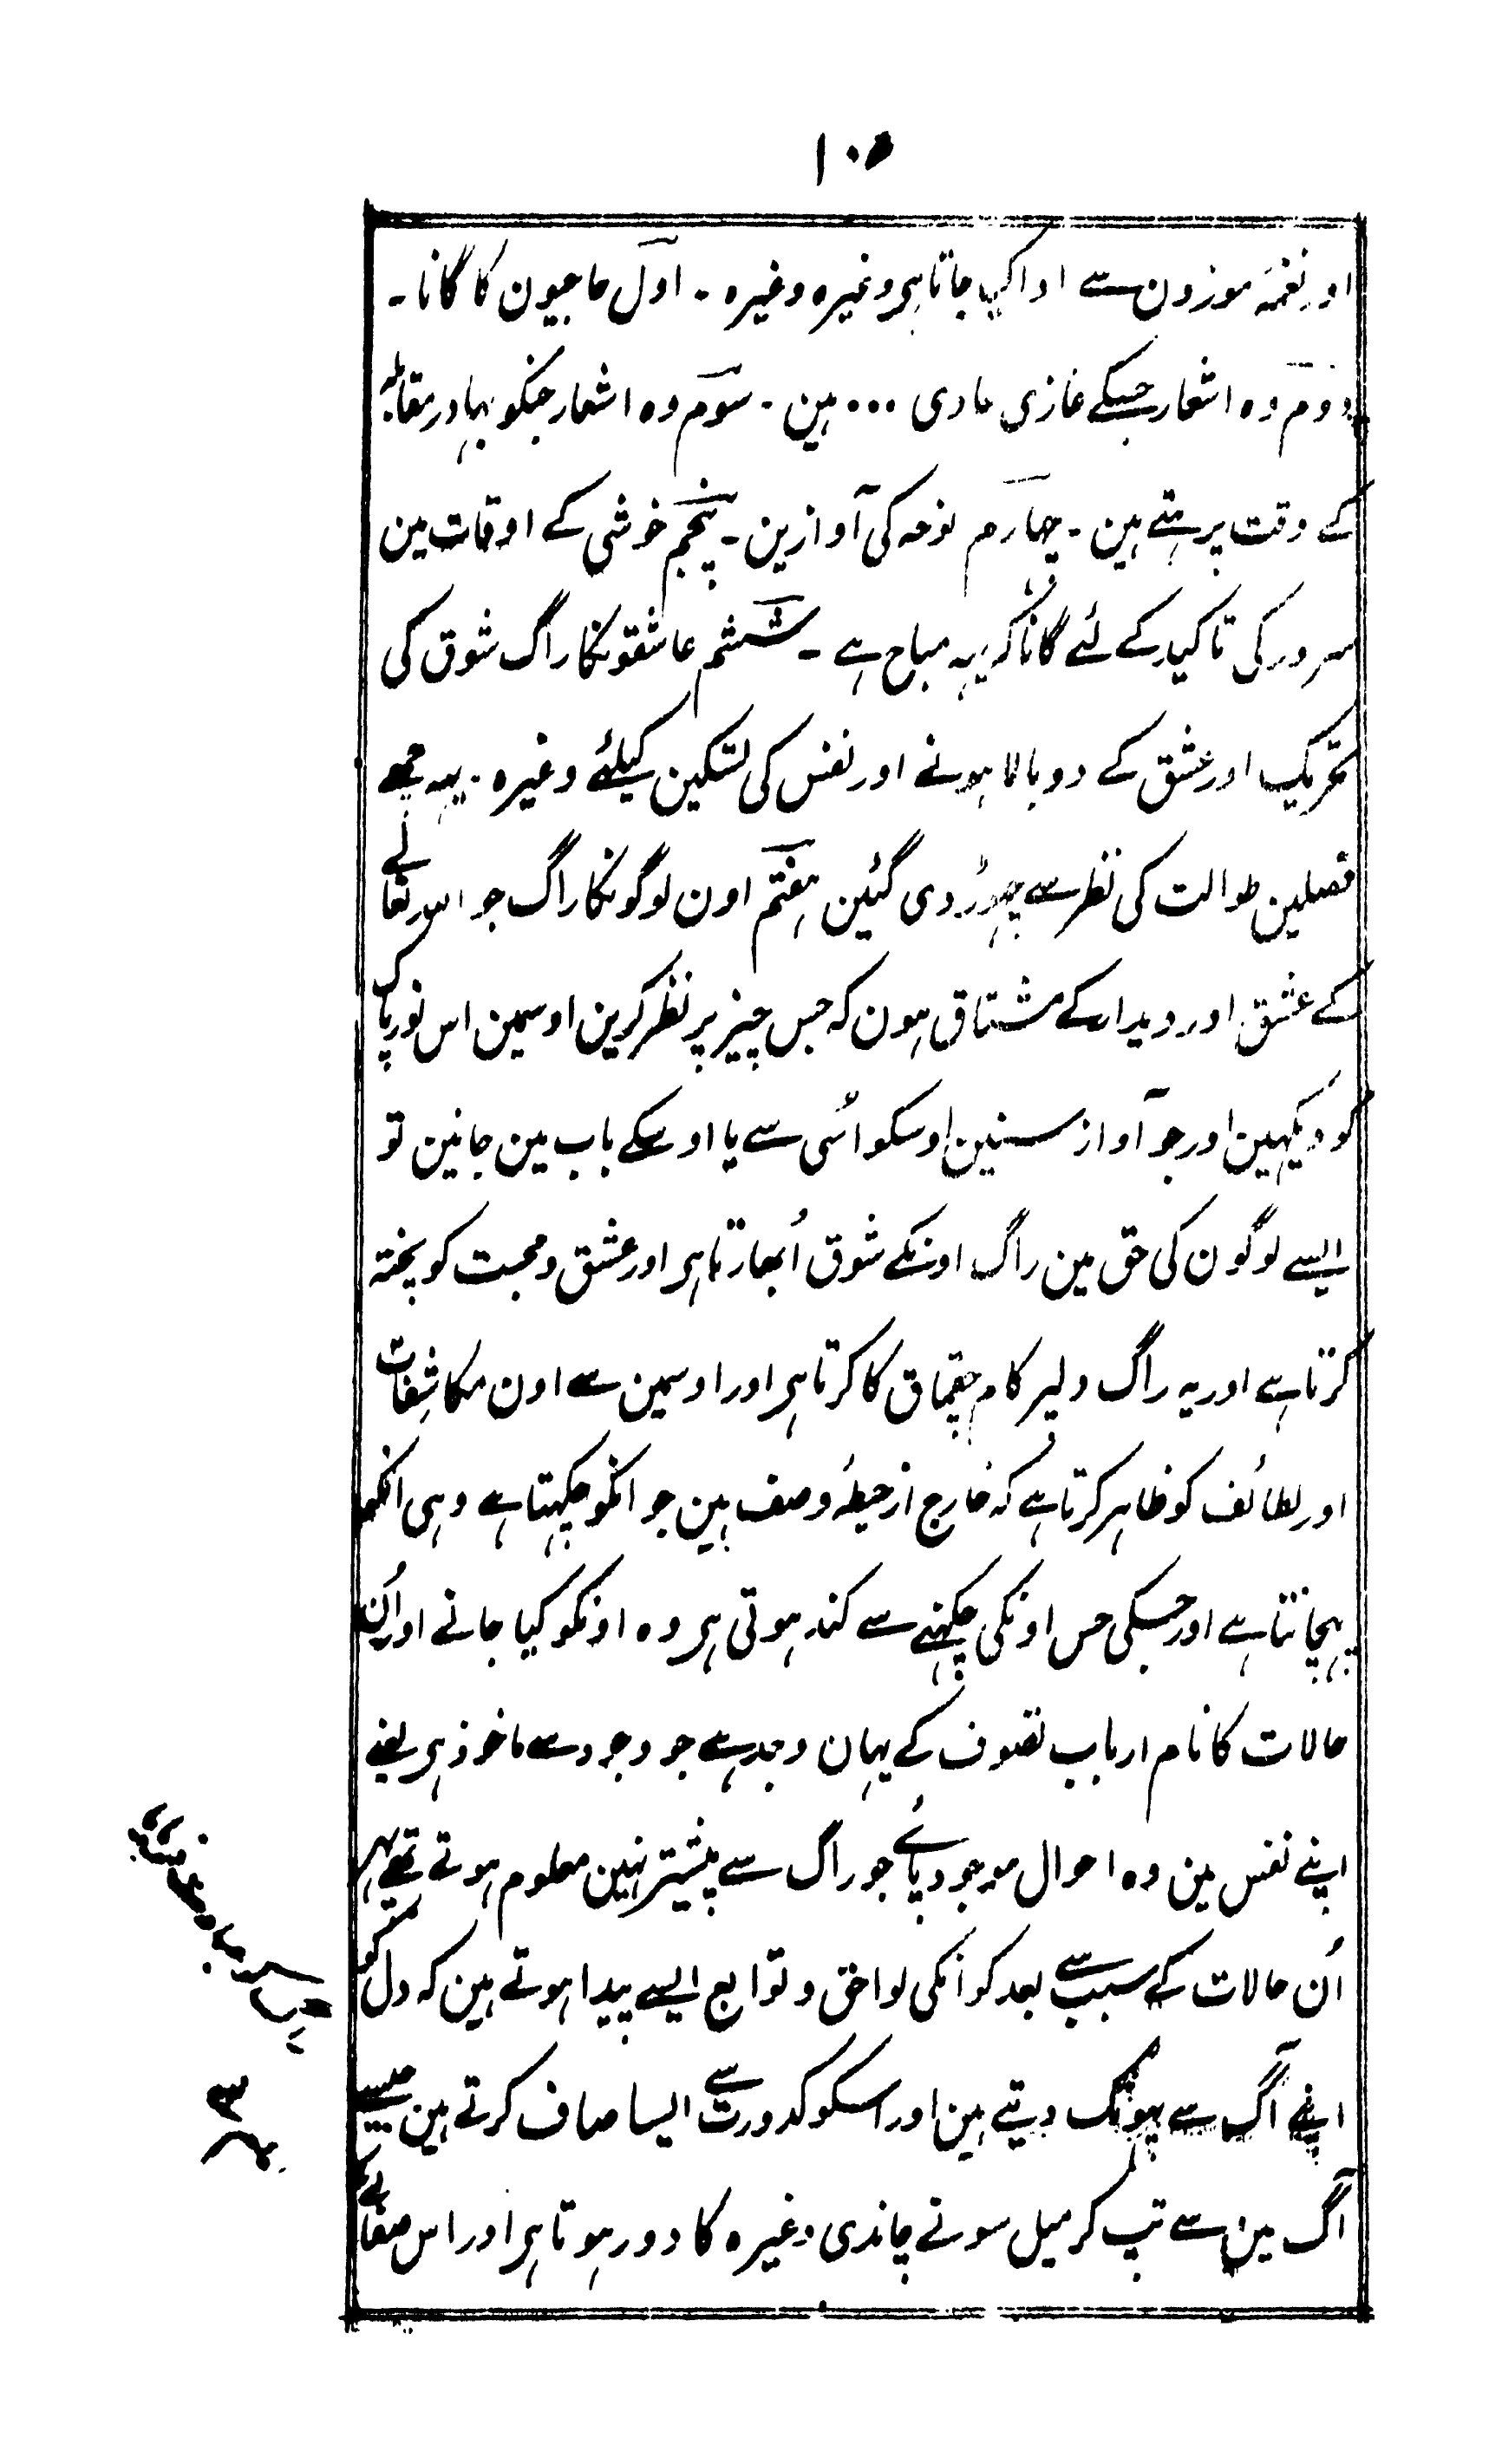 ۱۰۵
اور نغمہ موزون سے ادا کیا جاتا ہی وغیرہ وغیرہ ۔ اول حاجیون کا گانا ۔
دوم وہ اشعار جسکے غازی عادی ... ہین ۔ سوم وہ اشعار جنکو بہادر مقابلہ
کے وقت پڑہتے ہین ۔ چہارم نوحہ کی آوازین ۔ پنجم خوشی کے اوقات مین
سرور کی تاکید کے لئے گانا کہ یہہ مباح ہے ۔ ششم عاشقونکا راگ شوق کی
تحریک اور عشق کے دوبالا ہونے اور نفس کی تسکین کیلئے وغیرہ ۔ یہہ چھے
فصلین طوالت کی نظر سے چہوڑ دی گئین ہفتم اون لوگونکا راگ جو اللہ تعالے
کے عشق اور دیدار کے مشتاق ہون کہ جس چیز پر نظر کرین اوسمین اس نور پاک
کو دیکہین اور جو آواز سنین اوسکو اُسی سے یا اوسکے باب مین جانین تو
ایسے لوگون کی حق مین راگ اونکے شوق اُبھارتا ہی اور عشق و محبت کو پختہ
کرتا ہے اور یہ راگ دلپر کام چقماق کا کرتا ہی اور اوسمین سے اون مکاشفات
اور لطائف کو ظاہر کرتا ہے کہ خارج از حیطہٗ وصف ہین جو انکو چکہتا ہے وہی انکو
پہچانتا ہے اور جسکی حس اونکی چکہنے سے کند ہوتی ہی وہ اونکو کیا جانے اور اُن
حالات کا نام ارباب تصوف کے یہان وجد ہے جو وجود سے ماخوذ ہی یعنے
اپنے نفس مین وہ احوال موجود پائے جو راگ سے پیشتر نہین معلوم ہوتے تھے پہر
اُن حالات کے سبب سے بعد کو انکی لواحق و توابع ایسے پیدا ہوتے ہین کہ دل کو
اپنے آگ سے پہونک دیتے ہین اور اسکو کدورت سے ایسا صاف کرتے ہین جیسے
آگ مین سے تپ کر میل سونے چاندی وغیرہ کا دور ہوتا ہی اور اس صفائے